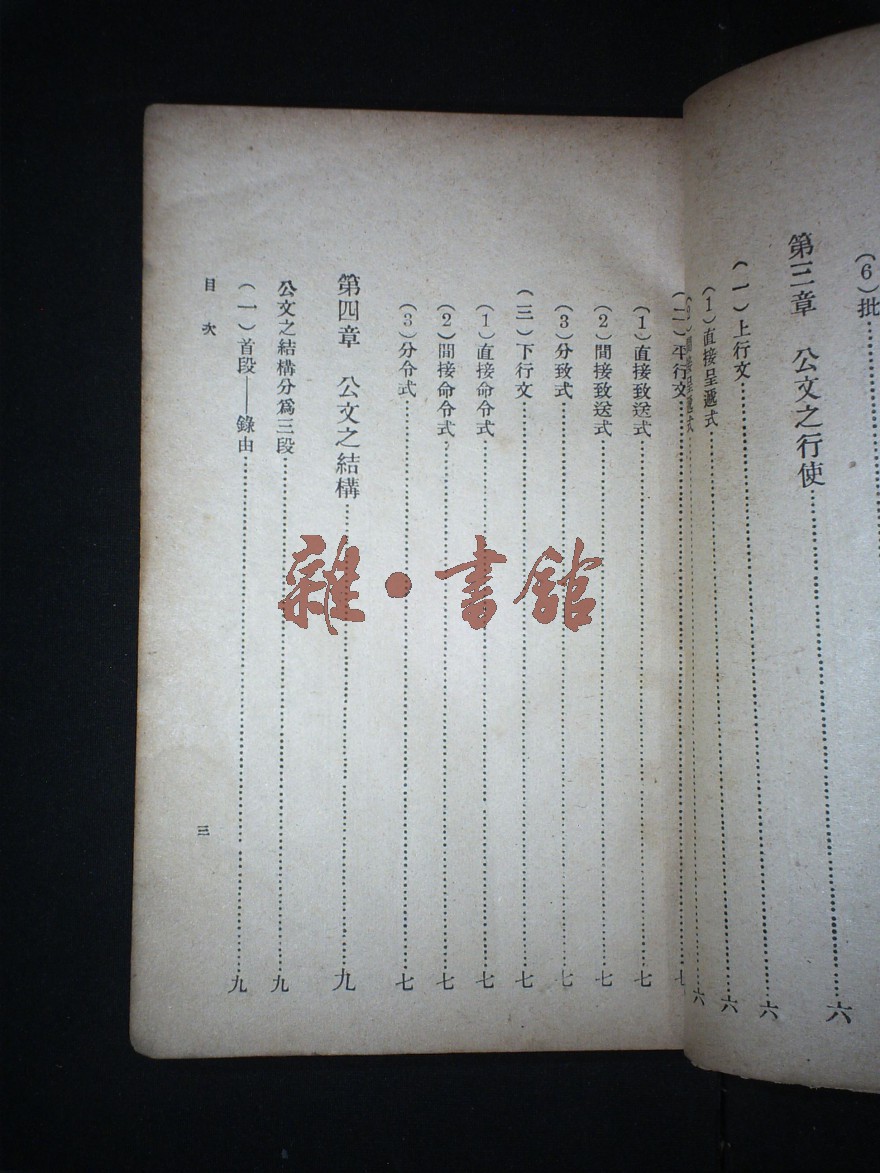 (6)批……
第三章 公文之行使……六
(一)上行文……六
(1)直接呈遞式……六
(2)間接呈遞式……六
(二)平行文……七
(1)直接致送式……七
(2)間接致送式……七
(3)分致式……七
(三)下行文……七
(1)直接命令式……七
(2)間接命令式……七
(3)分令式……七
第四章 公文之結構……九
公文之結構分爲三段……九
(一)首段——錄由……九
目次
三
雜·書館